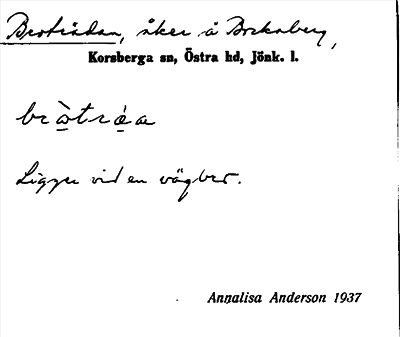 Broträdan, åker å Bockaberg,
Korsberga sn, Östra hd, Jönk. l.
bròtráa
Ligger vid en vägbro.
Annalisa Anderson 1937